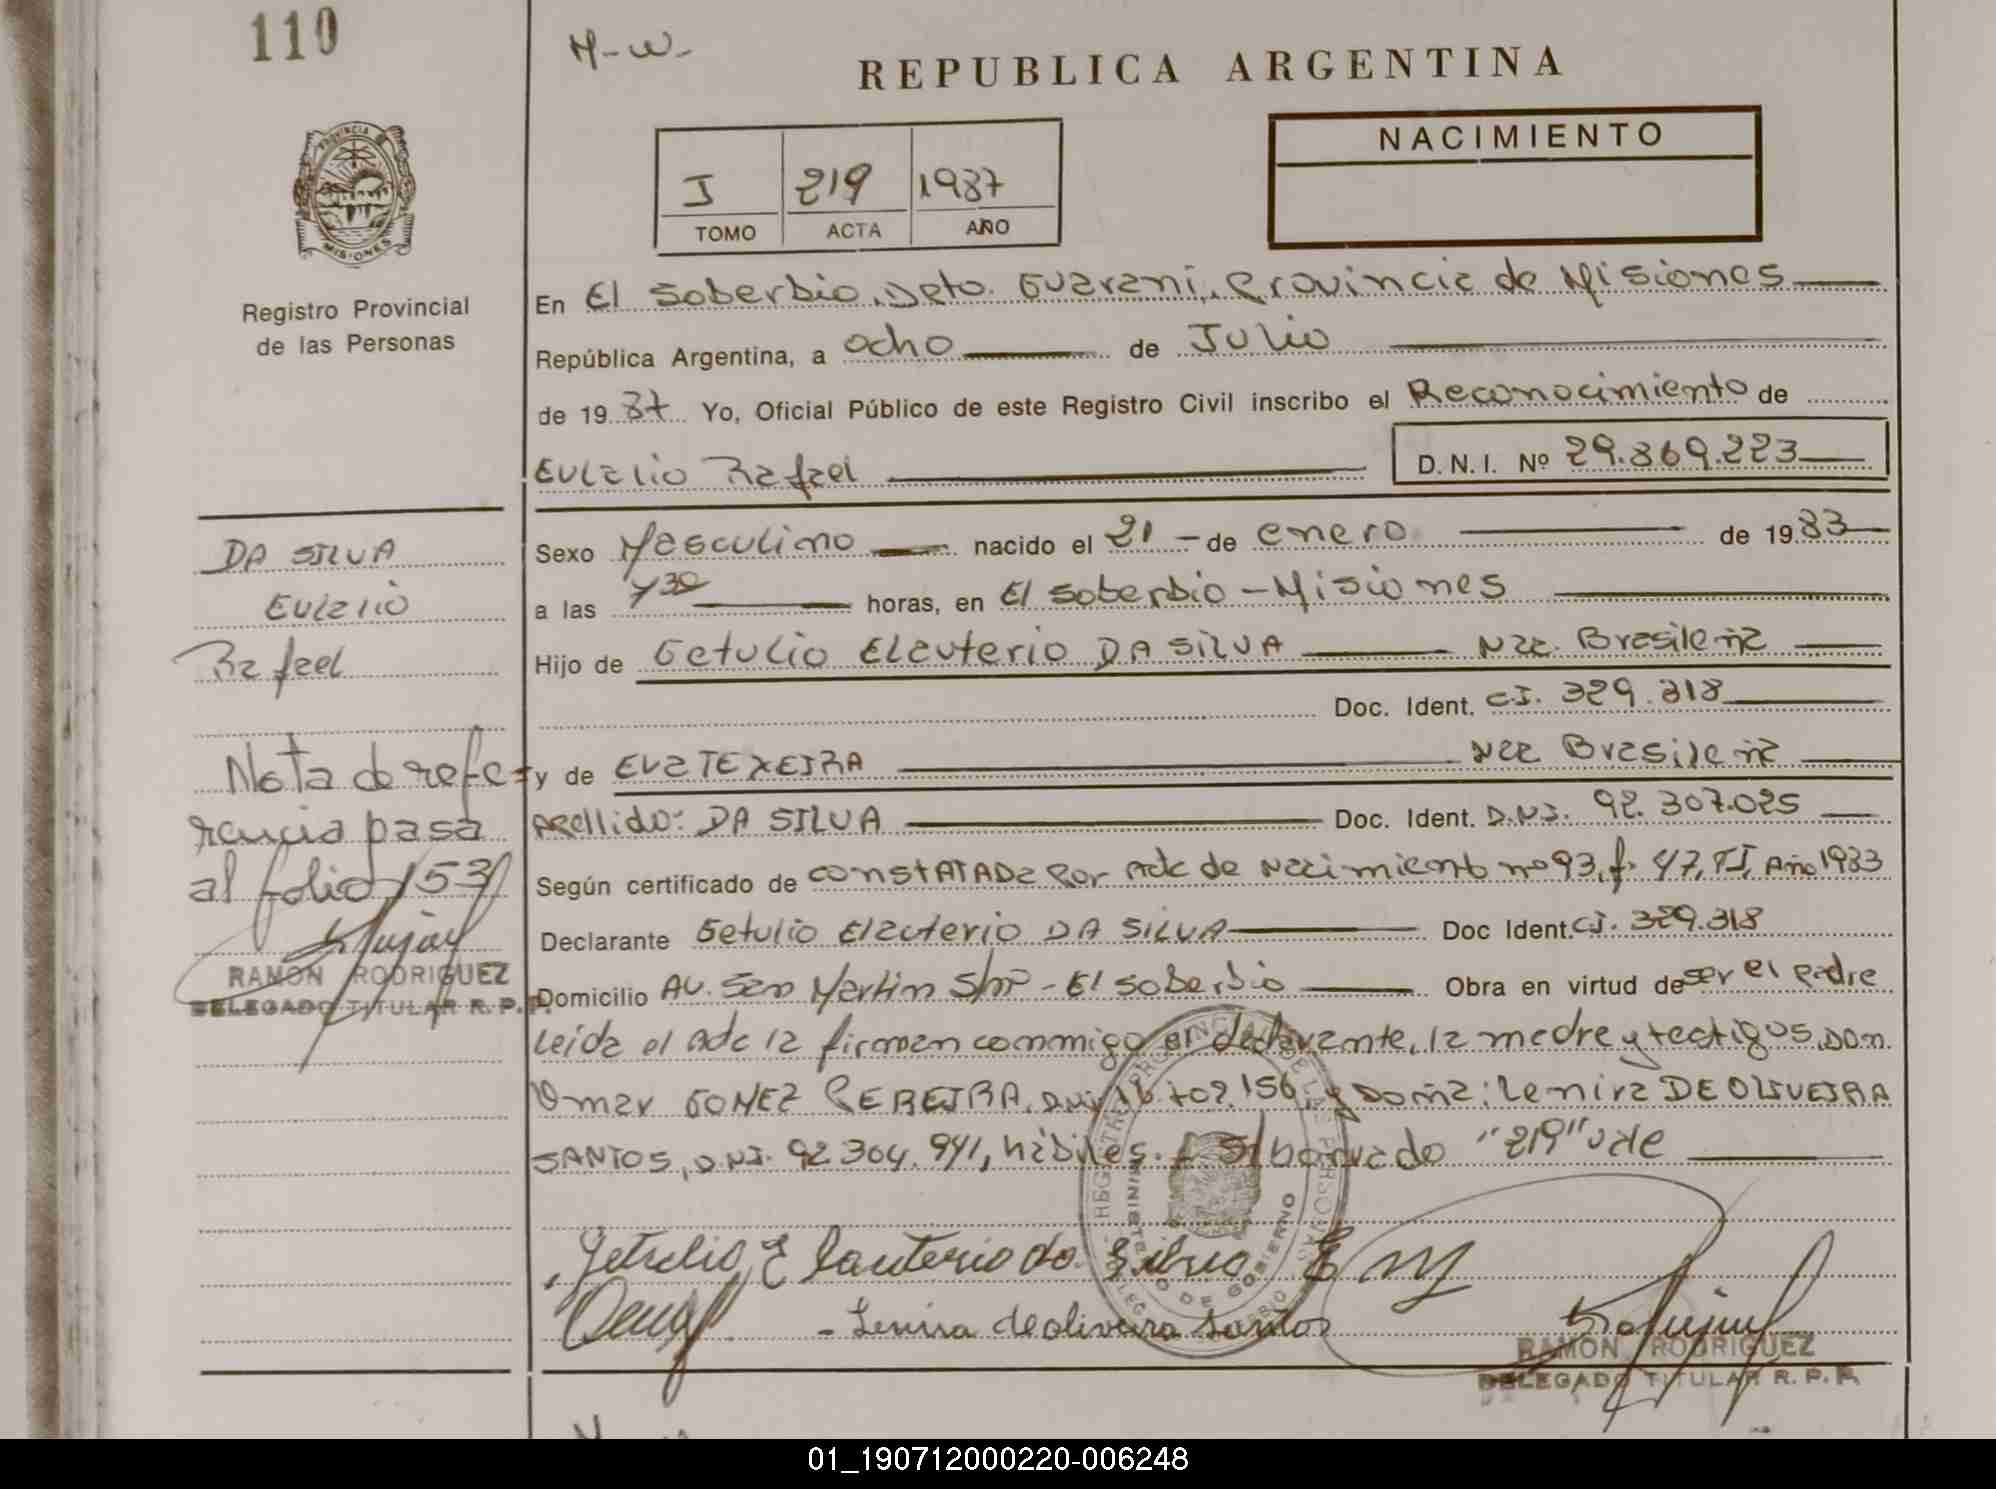 110
M-W-
REPUBLICA ARGENTINA
NACIMIENTO
I 219 1987
TOMO ACTA AÑO
PROVINCIA DE
MISIONES
Registro Provincial
de las Personas
En El Soberbio, Dpto. Guaraní, Provincia de Misiones
República Argentina, a ocho de Julio
de 1987 Yo, Oficial Público de este Registro Civil inscribo el Reconocimiento de
Eulalio Rafael D.N.I. Nº 29.869.223
DA SILVA
Eulalio
Rafael
Sexo Masculino nacido el 21 - de enero de 1983
a las 7 30 horas, en El Soberbio - Misiones
Hijo de Getulio Eleuterio DA SILVA Nac. Brasileña
Doc. Ident. C.I. 329.318
y de Eva TEXEIRA Nac Brasileña
Apellido: DA SILVA Doc. Ident. D.N.I. 92.307.025
Nota de refe=
rencia pasa
al folio 153
RAMON RODRIGUEZ
DELEGADO TITULAR R. P. P.
Según certificado de constatada por Acta de Nacimiento nº 93, fº 47, TI, Año 1983
Declarante Getulio Eleuterio DA SILVA Doc Ident. C.I. 329.318
Domicilio Av. San Martin S/nº - El Soberbio Obra en virtud de ser el padre
leida el acta la firman conmigo el declarante, la madre y testigos, Don
Omar GOMEZ PEREIRA, D.N.I. 16.702.156, y Doña: Lenira DE OLIVEIRA
SANTOS, D.N.I. 92.304.941, hábiles. S/borrado "219" vale
Getulio Eleuterio da Silva
- Lenira de oliveira Santos
REGISTRO PROVINCIAL DE LAS PERSONAS
MINISTERIO DE GOBIERNO
RAMON RODRIGUEZ
DELEGADO TITULAR R. P. P.
01_190712000220-006248